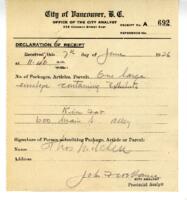 City of Vancouver, B.C.
OFFICE OF THE CITY ANALYST
RECEIPT No. A 692
REFERENCE No.
DECLARATION OF RECEIPT
Received this 7th day of June 1926
at 11:40
No. of Packages, Articles, Parcel: One large
envelope containing Exhibits
600 Main St. alley
Signature of Person submitting Package, Article or Parcel:
Address
CITY ANALYST
Provincial Analyst